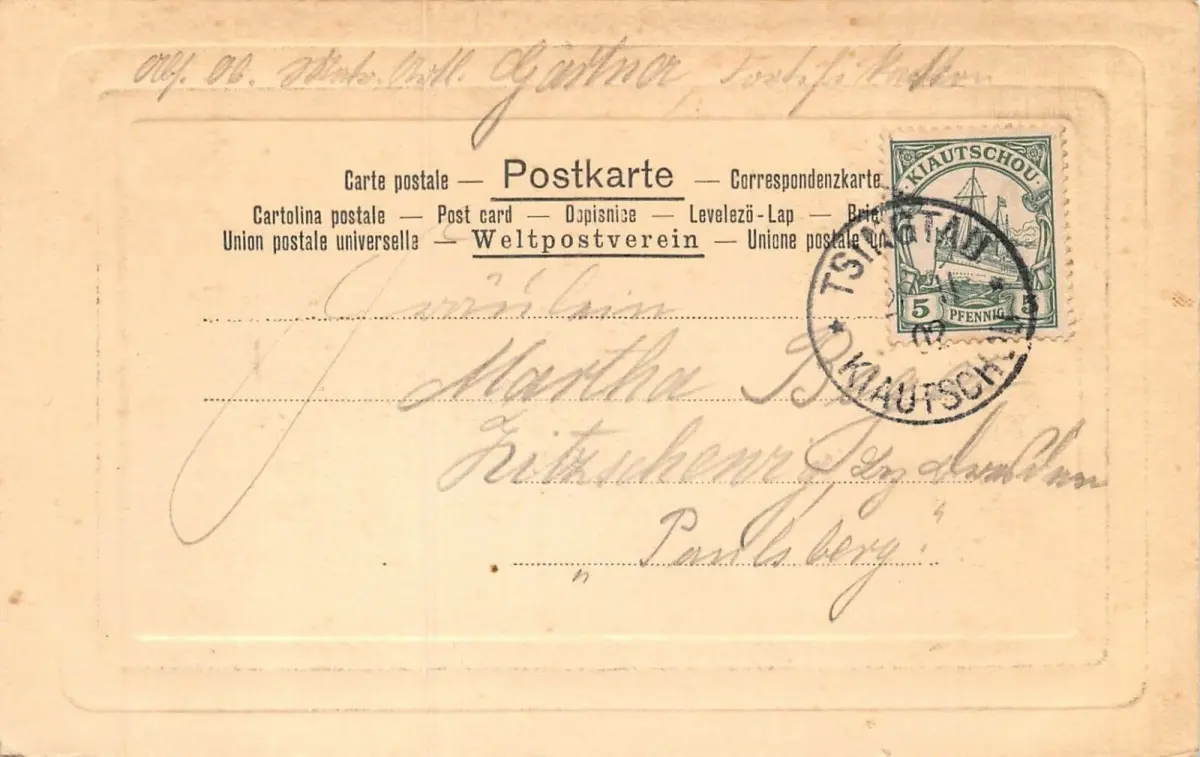 Gärtner, Fortifikation
Carte postale — Postkarte — Correspondenzkarte
Cartolina postale — Post card — Dopisnice — Levelező-Lap —
Union postale universelle — Weltpostverein — Unione postale
KIAUTSCHOU
5 PFENNIG 5
TSINGTAU
KIAUTSCHOU
Fräulein
Martha
Kötzschenbr. b/ Dresden
„Paulsberg."